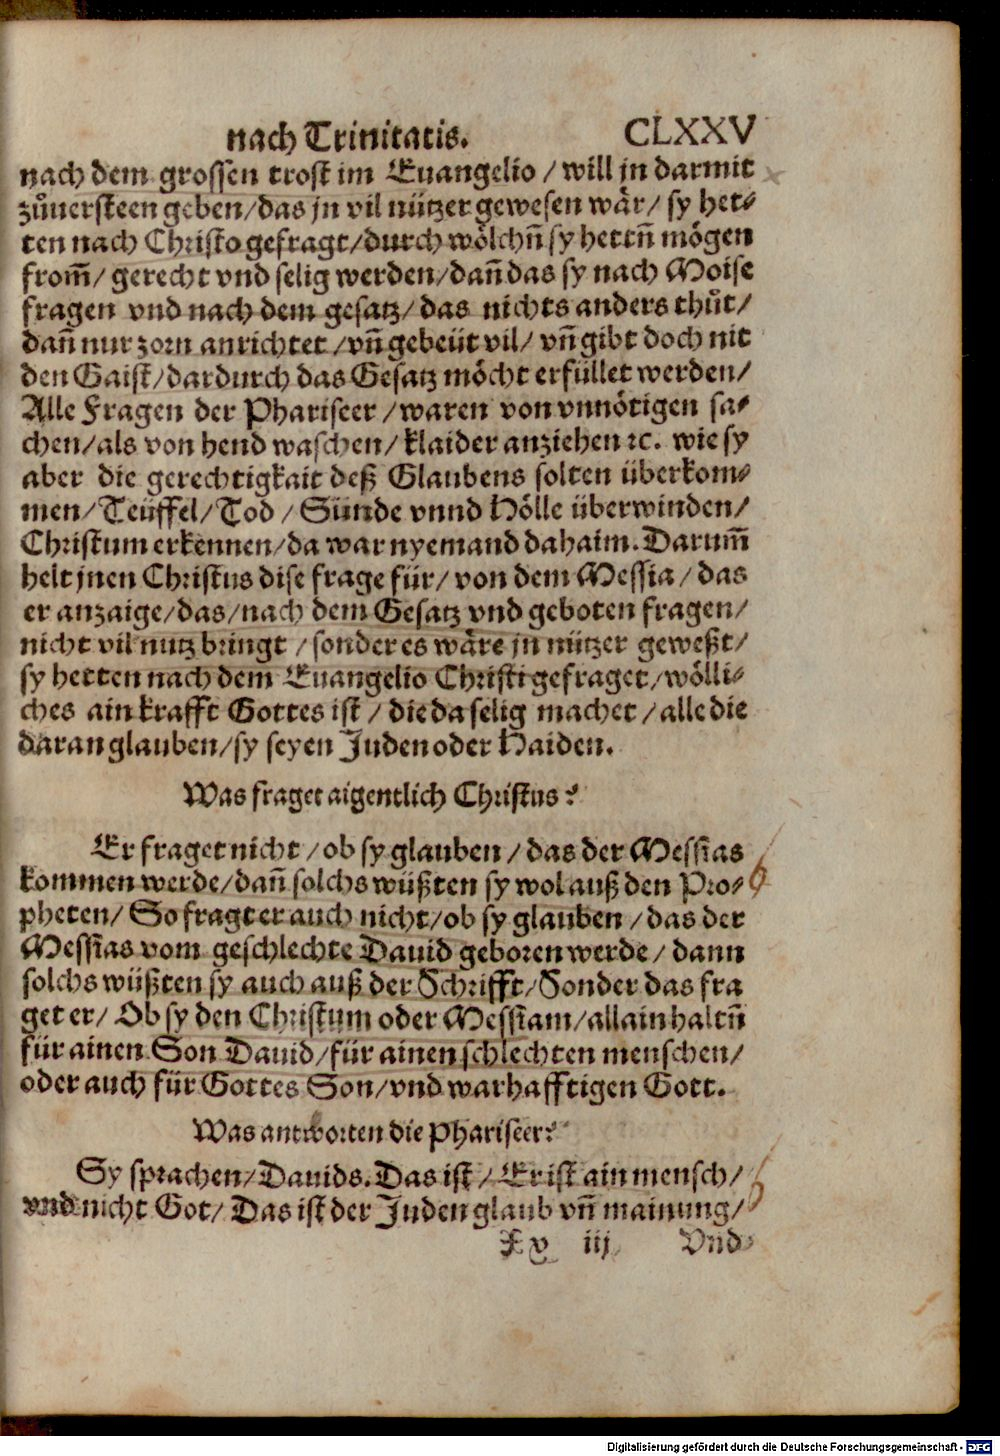 nach Trinitatis. CLXXV
nach dem grossen trost im Euangelio / will jn darmit
zůuersteen geben/das jn vil nützer gewesen wår/ sy het⸗
ten nach Christo gefragt/durch wölchñ sy hettñ mögen
from̃/ gerecht vnd selig werden/dañ das sy nach Moise
fragen vnd nach dem gesatz/ das nichts anders thůt/
dañ nur zorn anrichtet /vñ gebeüt vil/ vñ gibt doch nit
den Gaist/dardurch das Gesatz möcht erfüllet werden/
Alle Fragen der Phariseer /waren von vnnötigen sa⸗
chen/als von hend waschen/ klaider anziehen ⁊c. wie sy
aber die gerechtigkait deß Glaubens solten überkom⸗
men/ Teüffel/ Tod / Sünde vnnd Hölle überwinden/
Christum erkennen/da war nyemand dahaim. Darum̃
helt jnen Christus dise frage für/ von dem Messia/ das
er anzaige/das/nach dem Gesatz vnd geboten fragen/
nicht vil nutz bringt /sonder es wåre jn nützer geweßt/
sy hetten nach dem Euangelio Christi gefraget/wölli⸗
ches ain krafft Gottes ist / die da selig machet / alle die
daran glauben/sy seyen Juden oder Haiden.
Was fraget aigentlich Christus?
Er fraget nicht /ob sy glauben / das der Messias
kommen werde/dañ solchs wüßten sy wol auß den Pro⸗
pheten/ So fragt er auch nicht/ob sy glauben /das der
Messias vom geschlechte Dauid geboren werde/ dann
solchs wüßten sy auch auß der Schrifft/Sonder das fra
get er/ Ob sy den Christum oder Messiam/allain haltñ
für ainen Son Dauid/für ainen schlechten menschen/
oder auch für Gottes Son/vnd warhafftigen Gott.
Was antworten die Phariseer?
Sy sprachen/Dauids. Das ist/ Er ist ain mensch/
vnd nicht Got/ Das ist der Juden glaub vñ mainung/
Xv iij Vnd
Digitalisierung gefördert durch die Deutsche Forschungsgemeinschaft - DFG